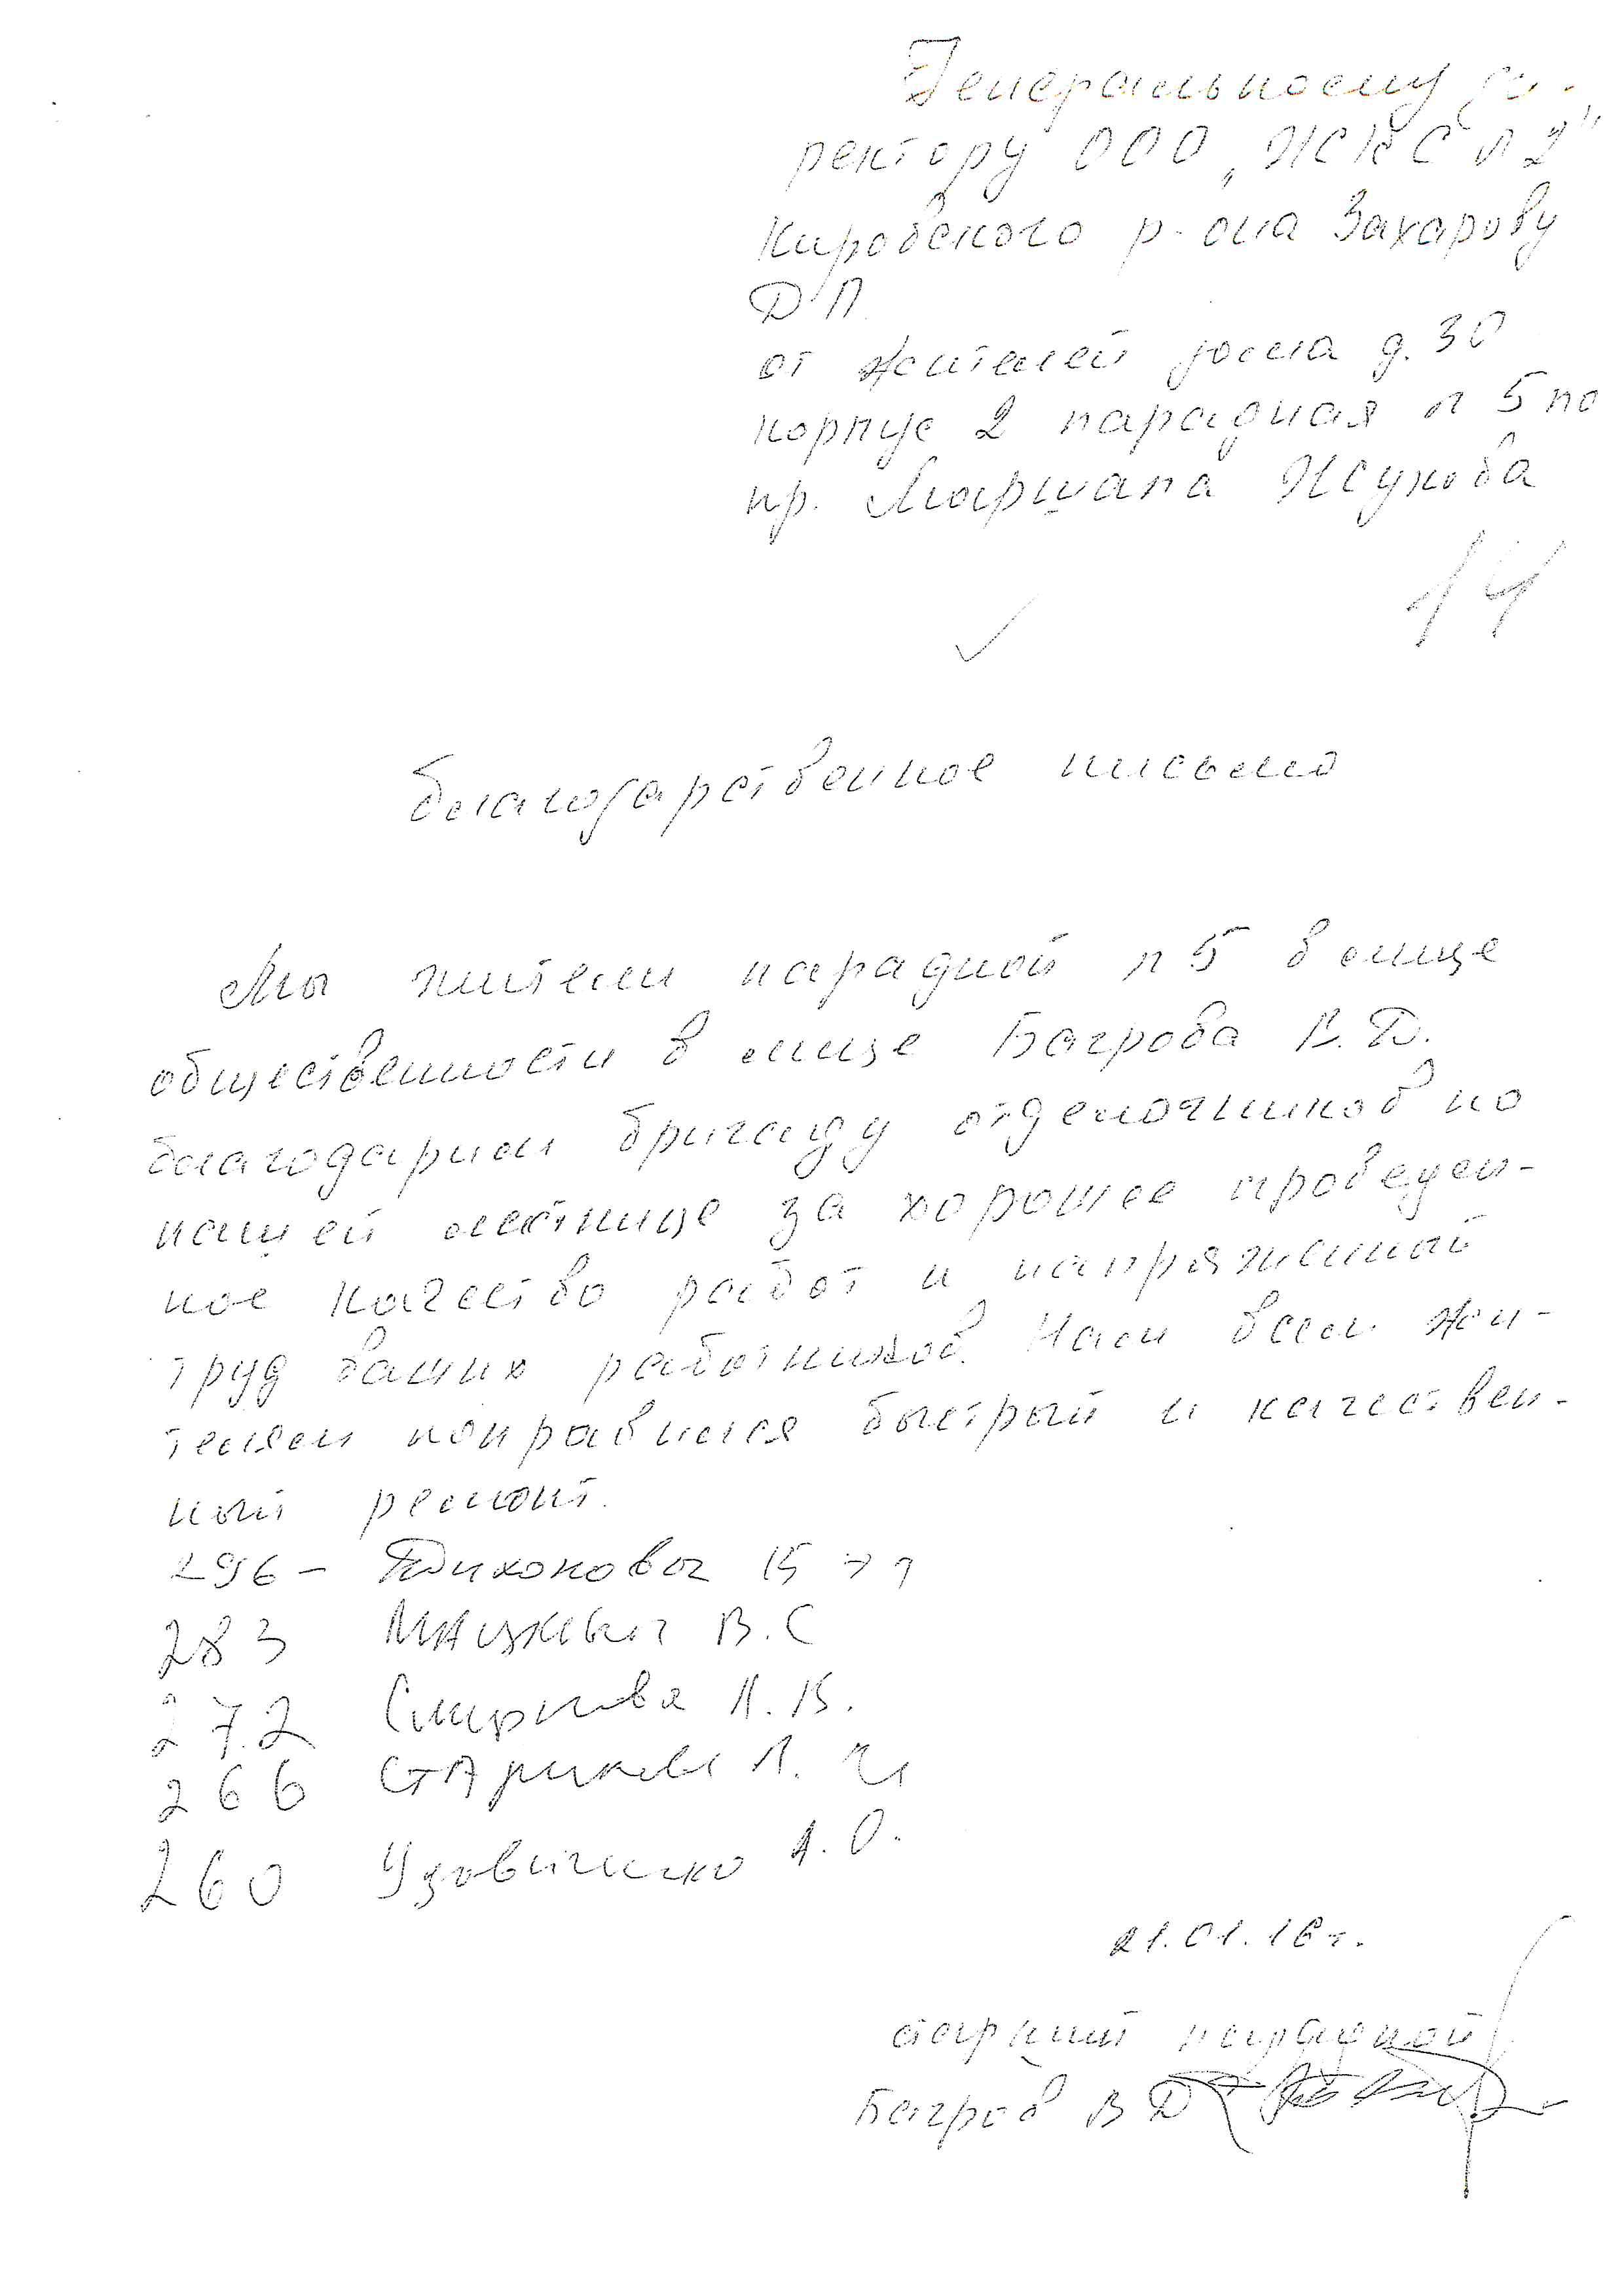 Генеральному ди-
ректору ООО „ЖКС №2"
Кировского р-она Захарову
Д П
от жителей дома д.30
корпус 2 парадная № 5 по
пр. Маршала Жукова
14
благодарственное письмо
Мы жители парадной №5 в лице
общественности в лице Багрова В.Д.
благодарим бригаду отделочников по
нашей лестнице за хорошее проведен-
ное качество работ и напряженный
труд ваших работников. Нам всем жи-
телям понравился быстрый и качествен-
ный ремонт.
296 – Тихоновы
283 Мацкевич В.С
272 Смирнова Л.В.
266 Старикова Л. И
260 Удовиченко А.О.
21.01.16 г.
старший парадной
Багров В Д